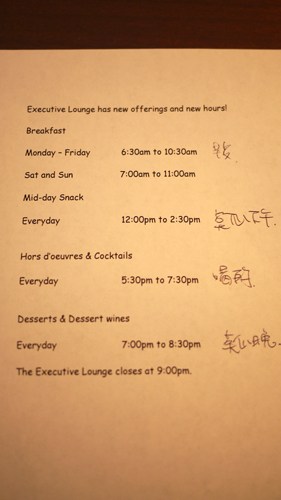 Executive Lounge has new offerings and new hours!
Breakfast
Monday - Friday 6:30am to 10:30am
Sat and Sun 7:00am to 11:00am
Mid-day Snack
Everyday 12:00pm to 2:30pm 点心下午
Hors d'oeuvres & Cocktails
Everyday 5:30pm to 7:30pm 喝酒
Desserts & Dessert wines
Everyday 7:00pm to 8:30pm 点心晚
The Executive Lounge closes at 9:00pm.